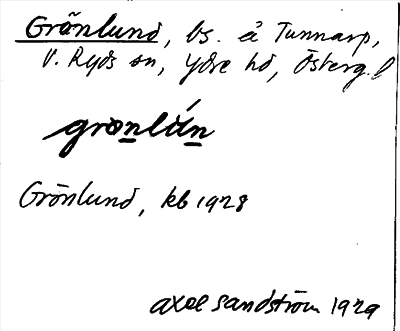 Grönlund, bs. å Tunnarp,
V. Ryds sn, Ydre hd, Österg. l
gronlún
Grönlund, kb 1928
axel sandström 1929